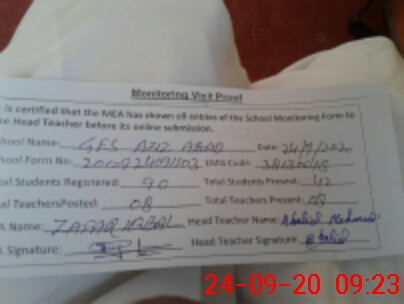 Monitoring Visit Proof
is certified that the MEA has shown all entries of the School Monitoring Form to
Head Teacher before its online submission.
School Name: GES AZIZ ABAD Date: 24/9/2020
School Form No: EMIS Code:
Total Students Registered: 90 Total Students Present:
Total Teachers Posted: 08 Total Teachers Present: 08
Name: ZAFAR IQBAL Head Teacher Name: Khalid Mehmood
Signature: Head Teacher Signature Khalid
24-09-20 09:23